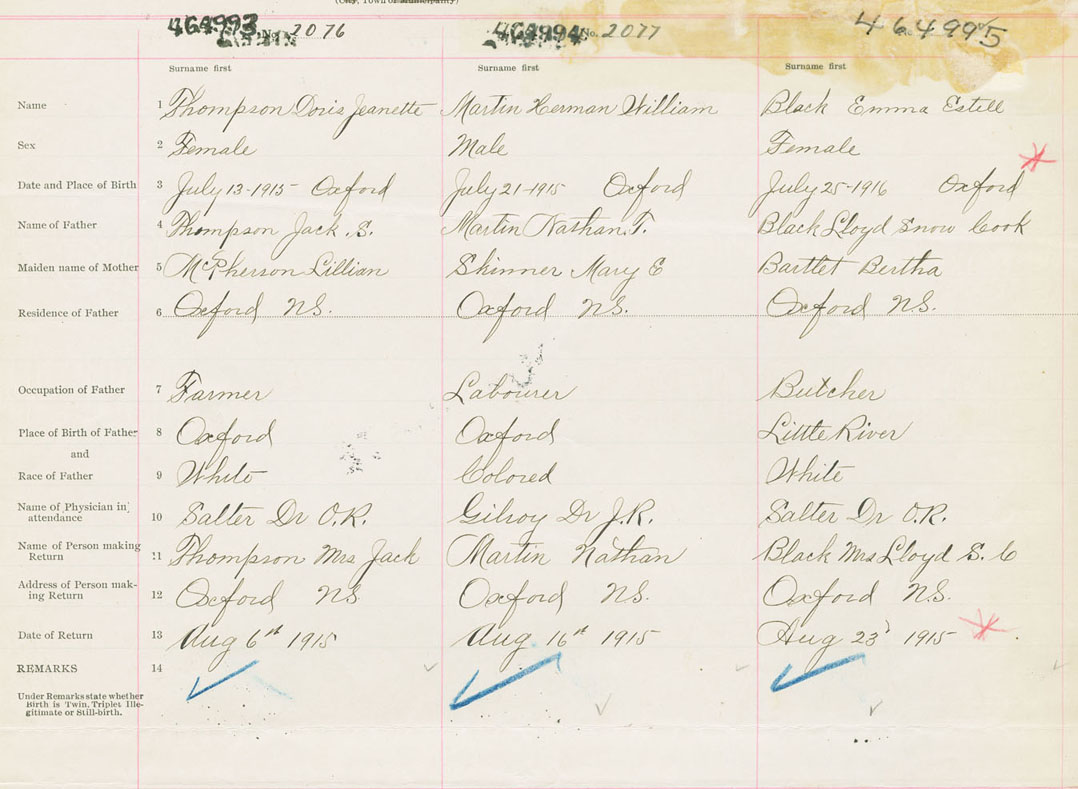 (City, Town or Municipality)
464993 No. 2076 464994 No. 2077 464995
Surname first Surname first Surname first
Name 1 Thompson Doris Jeanette Martin Herman William Black Emma Estell
Sex 2 Female Male Female
Date and Place of Birth 3 July 13-1915- Oxford July 21-1915 Oxford July 25-1916 Oxford
Name of Father 4 Thompson Jack S. Martin Nathan T. Black Lloyd Snow Cook
Maiden name of Mother 5 McPherson Lillian Skinner Mary E Bartlet Bertha
Residence of Father 6 Oxford N.S. Oxford N.S. Oxford N.S.
Occupation of Father 7 Farmer Labourer Butcher
Place of Birth of Father 8 Oxford Oxford Little River
and
Race of Father 9 White Colored White
Name of Physician in attendance 10 Salter Dr O.R. Gilroy Dr J.R. Salter Dr O.R.
Name of Person making Return 11 Thompson Mrs Jack Martin Nathan Black Mrs Lloyd S. C
Address of Person mak-ing Return 12 Oxford N.S. Oxford N.S. Oxford N.S.
Date of Return 13 Aug 6th 1915 Aug 16th 1915 Aug 23 1915
REMARKS 14
Under Remarks state whether
Birth is Twin, Triplet Ille-
gitimate or Still-birth.